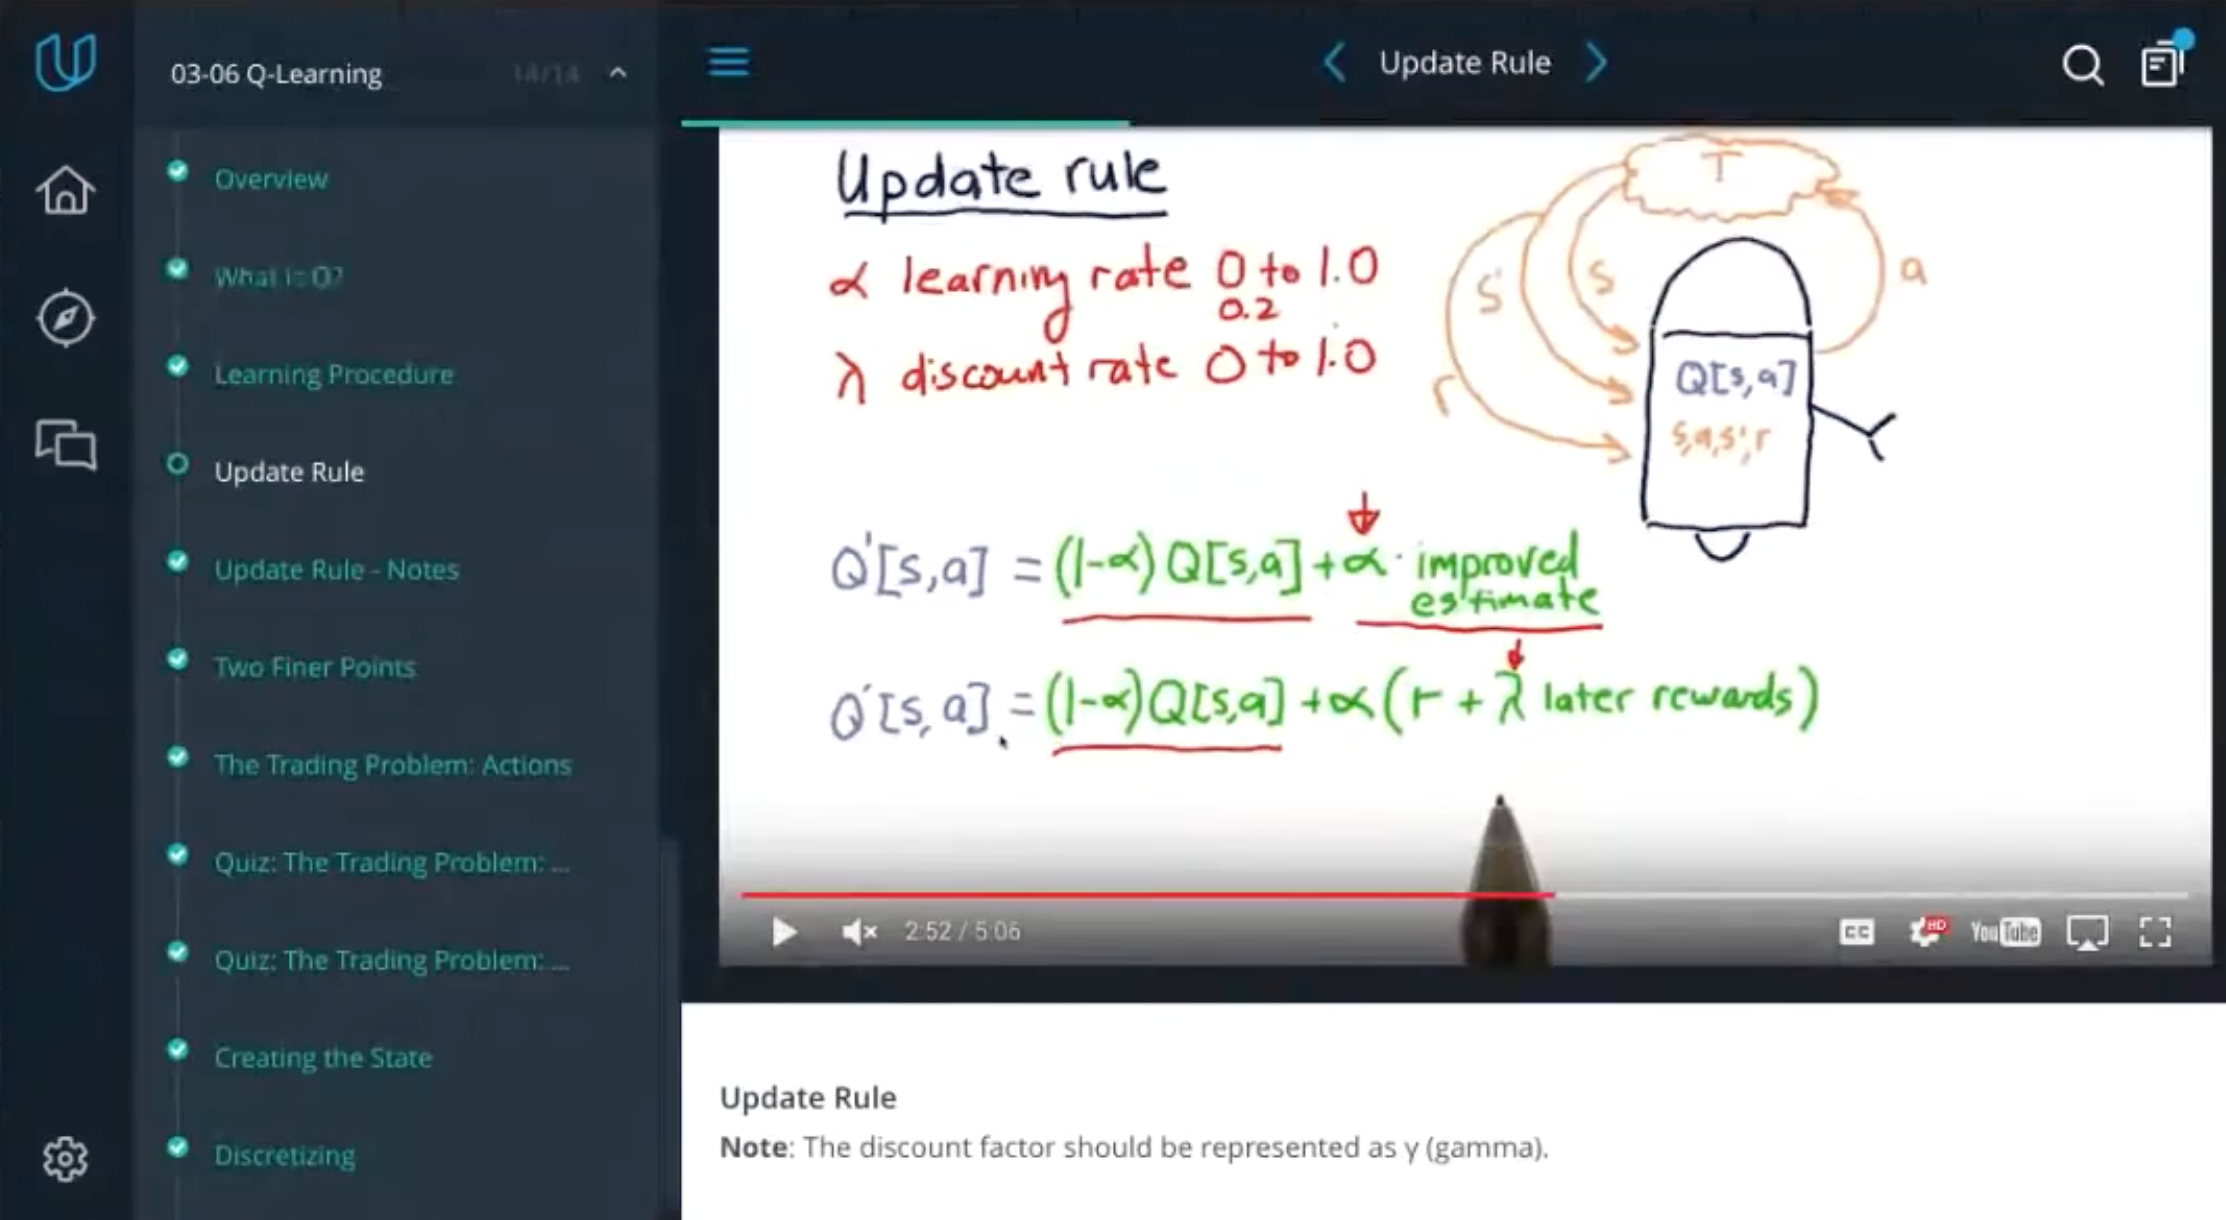 03-06 Q-Learning 14/14
Overview
What is Q?
Learning Procedure
Update Rule
Update Rule - Notes
Two Finer Points
The Trading Problem: Actions
Quiz: The Trading Problem: ...
Quiz: The Trading Problem: ...
Creating the State
Discretizing
Update Rule
Update rule
α learning rate 0 to 1.0
0.2
λ discount rate 0 to 1.0
T
s'
s
a
r
Q[s,a]
s,a,s',r
Q'[s,a] = (1-α) Q[s,a] + α · improved
estimate
Q'[s,a] = (1-α)Q[s,a] + α(r + λ later rewards)
2:52 / 5:06
CC
HD
YouTube
Update Rule
Note: The discount factor should be represented as γ (gamma).